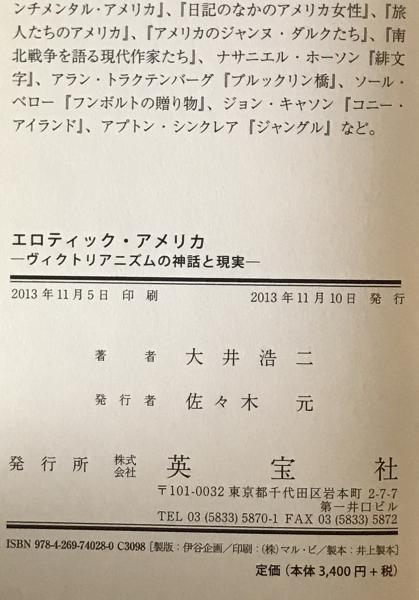 ンチメンタル・アメリカ』、『日記のなかのアメリカ女性』、『旅
人たちのアメリカ』、『アメリカのジャンヌ・ダルクたち』、『南
北戦争を語る現代作家たち』、ナサニエル・ホーソン『緋文
字』、アラン・トラクテンバーグ『ブルックリン橋』、ソール・
ベロー『フンボルトの贈り物』、ジョン・キャソン『コニー・
アイランド』、アプトン・シンクレア『ジャングル』など。
エロティック・アメリカ
―ヴィクトリアニズムの神話と現実―
2013年11月5日 印刷 2013年11月10日 発行
著者 大井浩二
発行者 佐々木 元
発行所 株式会社 英宝社
〒101-0032 東京都千代田区岩本町 2-7-7
第一井口ビル
TEL 03 (5833) 5870-1 FAX 03 (5833) 5872
ISBN 978-4-269-74028-0 C3098 [製版:伊谷企画/印刷:(株)マル・ビ/製本:井上製本]
定価(本体 3,400 円+税)